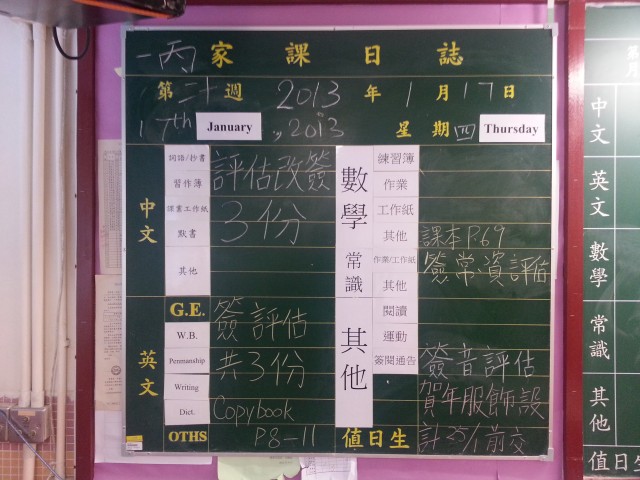 一丙 家課日誌
第二十週 2013年1月17日
17th January, 2013 星期四 Thursday
中文
詞語/抄書
習作簿
課業工作紙
默書
其他
評估改簽
3份
英文
G.E.
W.B.
Penmanship
Writing
Dict.
OTHS
簽評估
共3份
Copybook
P8-11
數學
練習簿
作業
工作紙
其他
課本 P.69
常識
作業/工作紙
其他
簽常資評估
其他
閱讀
運動
簽閱通告
簽音評估
賀年服飾設
值日生
計 25/1前交
中文
英文
數學
常識
其他
值日生